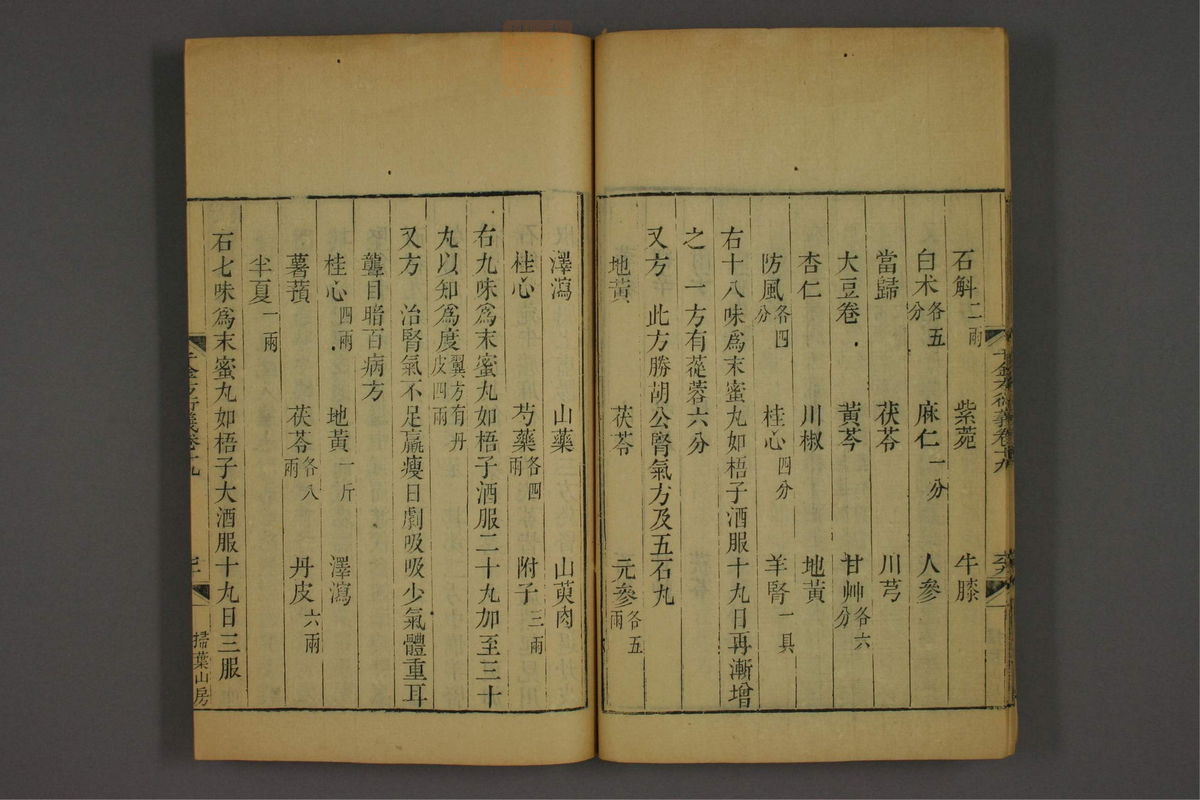 石斛二兩 紫菀 牛膝
白朮各五分 麻仁一分 人參
當歸 茯苓 川芎
大豆卷 黃芩 甘艸各六分
杏仁 川椒 地黃
防風各四分 桂心四分 羊腎一具
右十八味爲末蜜丸如梧子酒服十丸日再漸增
之 一方有蓯蓉六分
又方 此方勝胡公腎氣方及五石丸
地黃 茯苓 元參各五兩
澤瀉 山藥 山萸肉
桂心 芍藥各四兩 附子三兩
右九味爲末蜜丸如梧子酒服二十丸加至三十
丸以知爲度翼方有丹皮四兩
又方 治腎氣不足羸瘦日劇吸吸少氣體重耳
聾目暗百病方
桂心四兩 地黃一斤 澤瀉
薯蕷 茯苓各八兩 丹皮六兩
半夏一兩
右七味爲末蜜丸如梧子大酒服十丸日三服
千金方衍義卷十九
掃葉山房